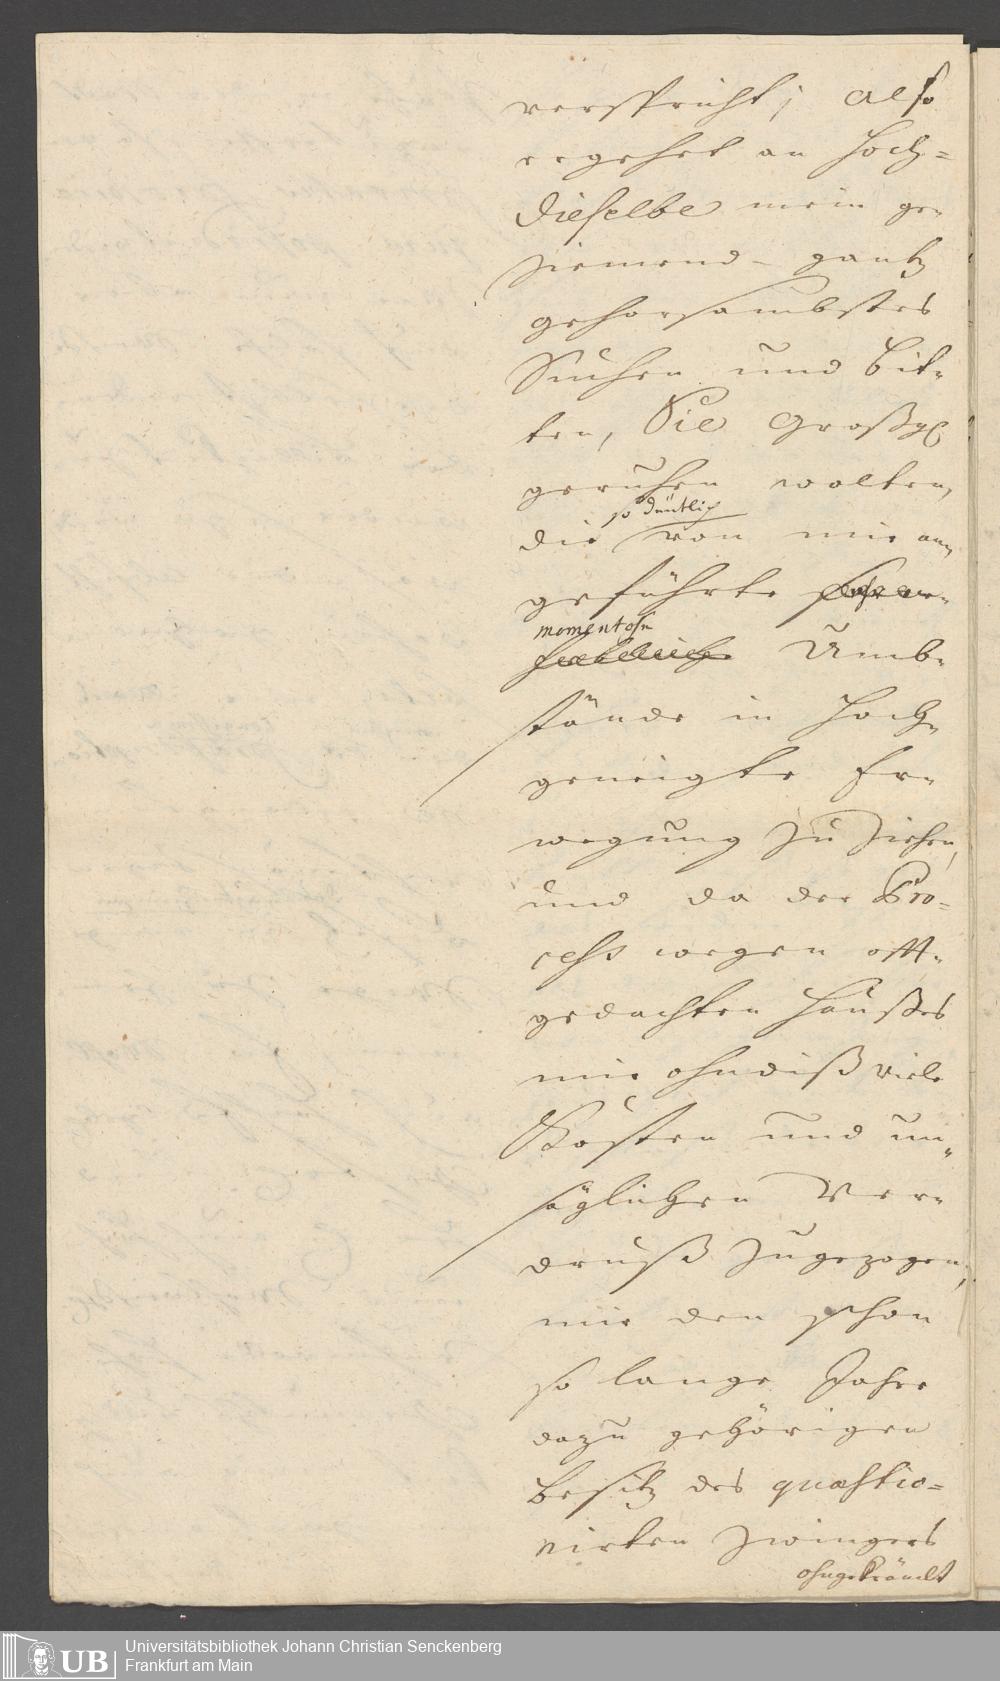 verspricht; also
ergehet an Hoch=
Dieselbe mein ge=
ziemend= gantz
gehorsambstes
Suchen und bit=
ten, Sie Großgl
geruhen wolten,
so deutlich
die von mir an=
geführte
momentose
Umb=
stände in Hoch=
geneigte Er=
wegung zu ziehen,
und da der Pro=
cess wegen offt=
gedachten Haußes
mir ohndiß viele
Kosten und un=
säglichen Ver=
druß zugezogen,
mir den schon
so lange Jahre
dazu gehörigen
besitz des quaestio=
nirten Zwingers
ohngekränckt
UB
Universitätsbibliothek Johann Christian Senckenberg
Frankfurt am Main